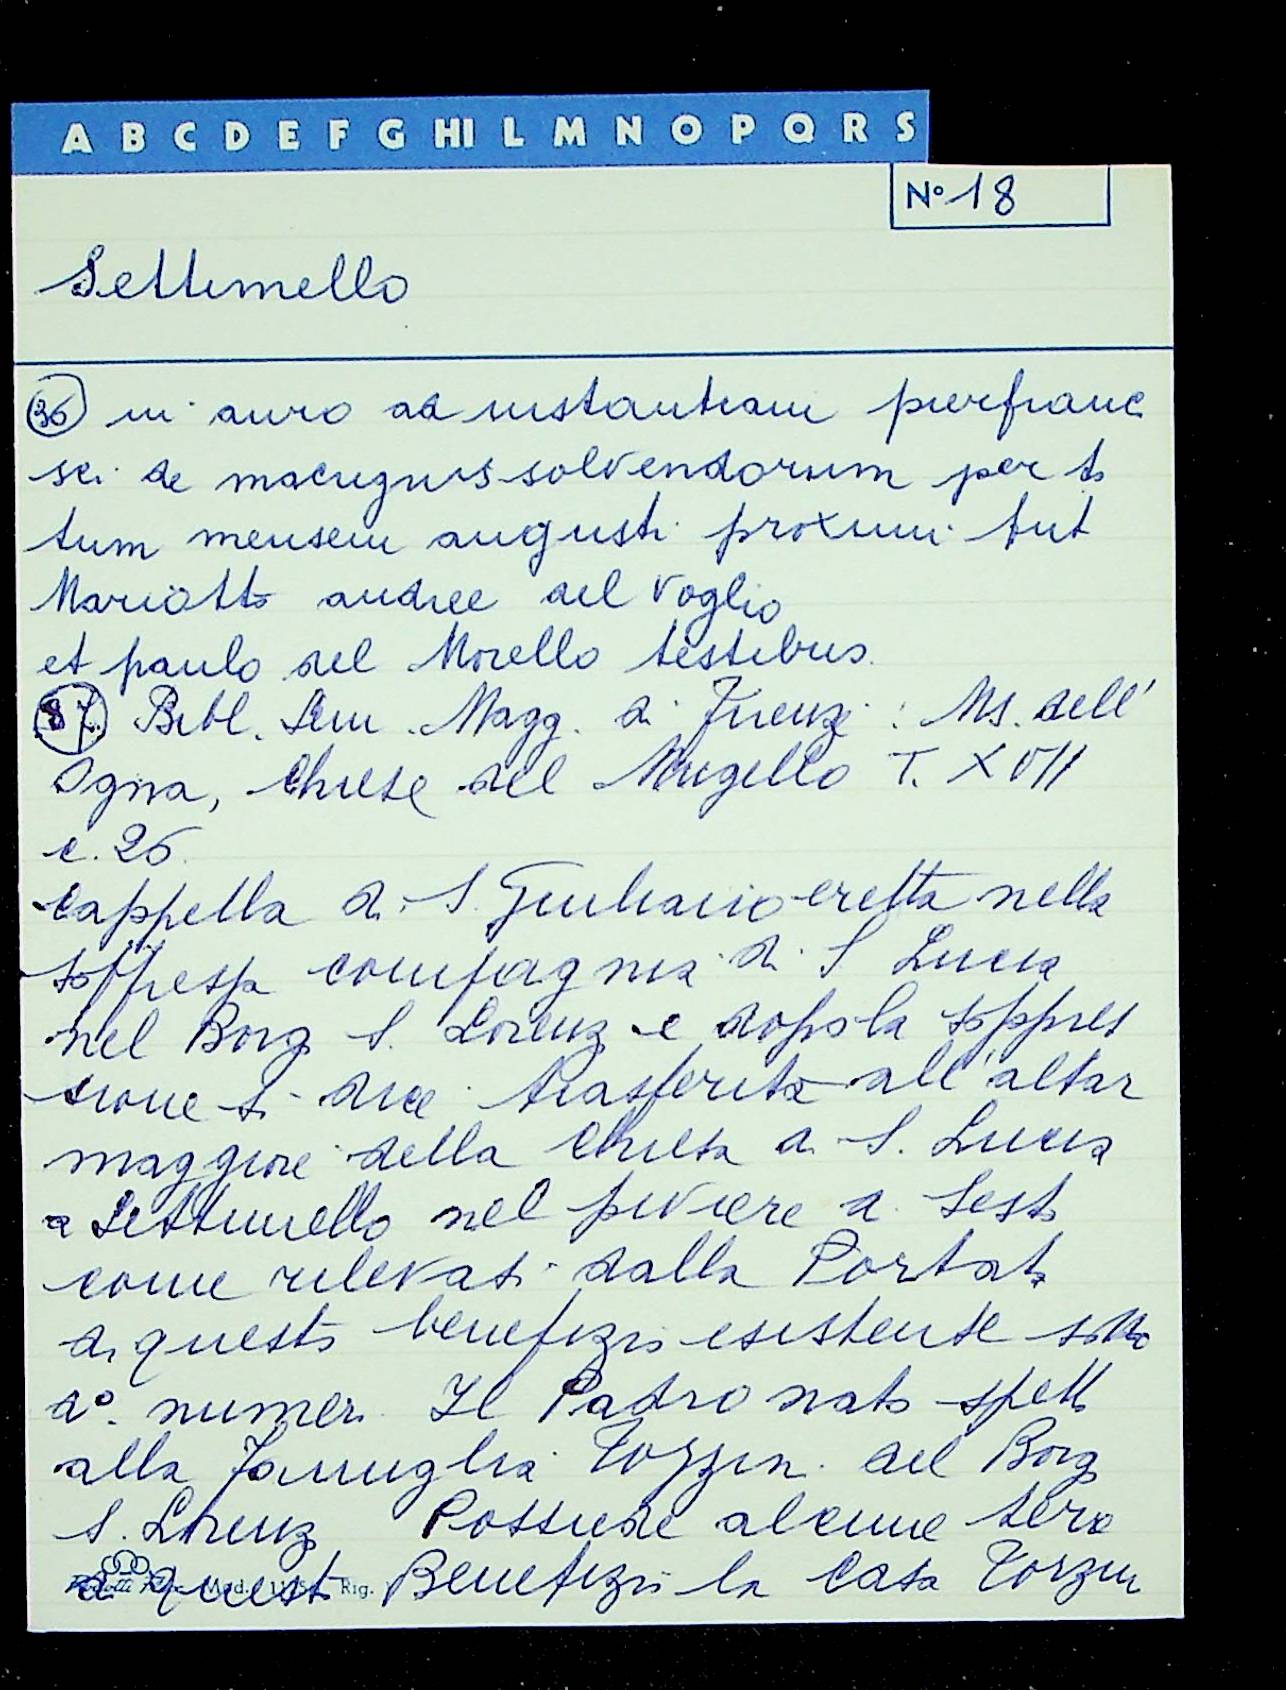 A B C D E F G HI L M N O P Q R S
N° 18
Settimello
36 in auro ad instantiam pierfranc
sci de macignis solvendorum per to
tum mensem augusti proximi fut
Mariotto andree del Voglio
et paulo del Morello testibus.
37 Bibl. Sem. Magg. di Firenze: Ms. dell'
Ogna, Chiese del Mugello T. XVII
c. 26.
Cappella di S. Giuliano eretta nella
soppressa compagnia di S. Lucia
nel Borgo S. Lorenzo e dopo la soppres
sione si dice trasferita all'altar
maggiore della Chiesa di S. Lucia
a Settimello nel piviere di Sesto
come rilevasi dalla Portata
di questo benefizio esistente sotto
d°. numero. Il Padronato spetta
alla Famiglia del Borgo
S. Lorenzo Possiede alcune terre
di questo Benefizio la Casa
Rig.